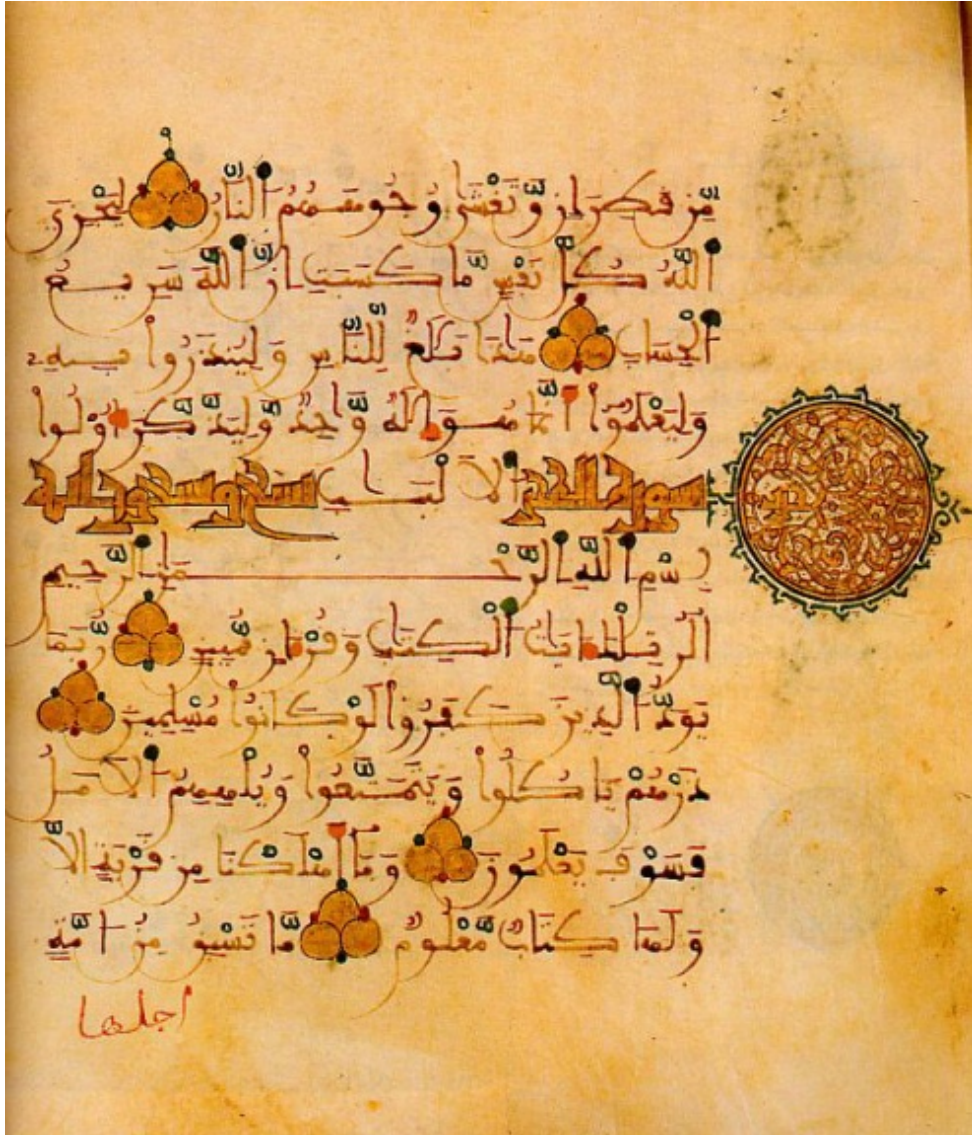 مِّن قَطِرَانٍ وَّتَغْشَىٰ وُجُوهَهُمُ النَّارُ لِيَجْزِيَ
اللَّهُ كُلَّ نَفْسٍ مَّا كَسَبَتْ إِنَّ اللَّهَ سَرِيعُ
الْحِسَابِ هَٰذَا بَلَٰغٌ لِّلنَّاسِ وَلِيُنذَرُوا بِهِ
وَلِيَعْلَمُوا أَنَّمَا هُوَ إِلَٰهٌ وَّاحِدٌ وَّلِيَذَّكَّرَ أُوْلُوا
سورة الحجر الْأَلْبَابِ تسع وتسعون اية
بِسْمِ اللَّهِ الرَّحْمَٰنِ الرَّحِيمِ
الر تِلْكَ ءَايَاتُ الْكِتَابِ وَقُرْءَانٍ مُّبِينٍ رُّبَمَا
يَوَدُّ الَّذِينَ كَفَرُوا لَوْ كَانُوا مُسْلِمِينَ
ذَرْهُمْ يَاكُلُوا وَيَتَمَتَّعُوا وَيُلْهِهِمُ الْأَمَلُ
فَسَوْفَ يَعْلَمُونَ وَمَا أَهْلَكْنَا مِن قَرْيَةٍ إِلَّا
وَلَهَا كِتَابٌ مَّعْلُومٌ مَّا تَسْبِقُ مِنْ أُمَّةٍ
اجلها